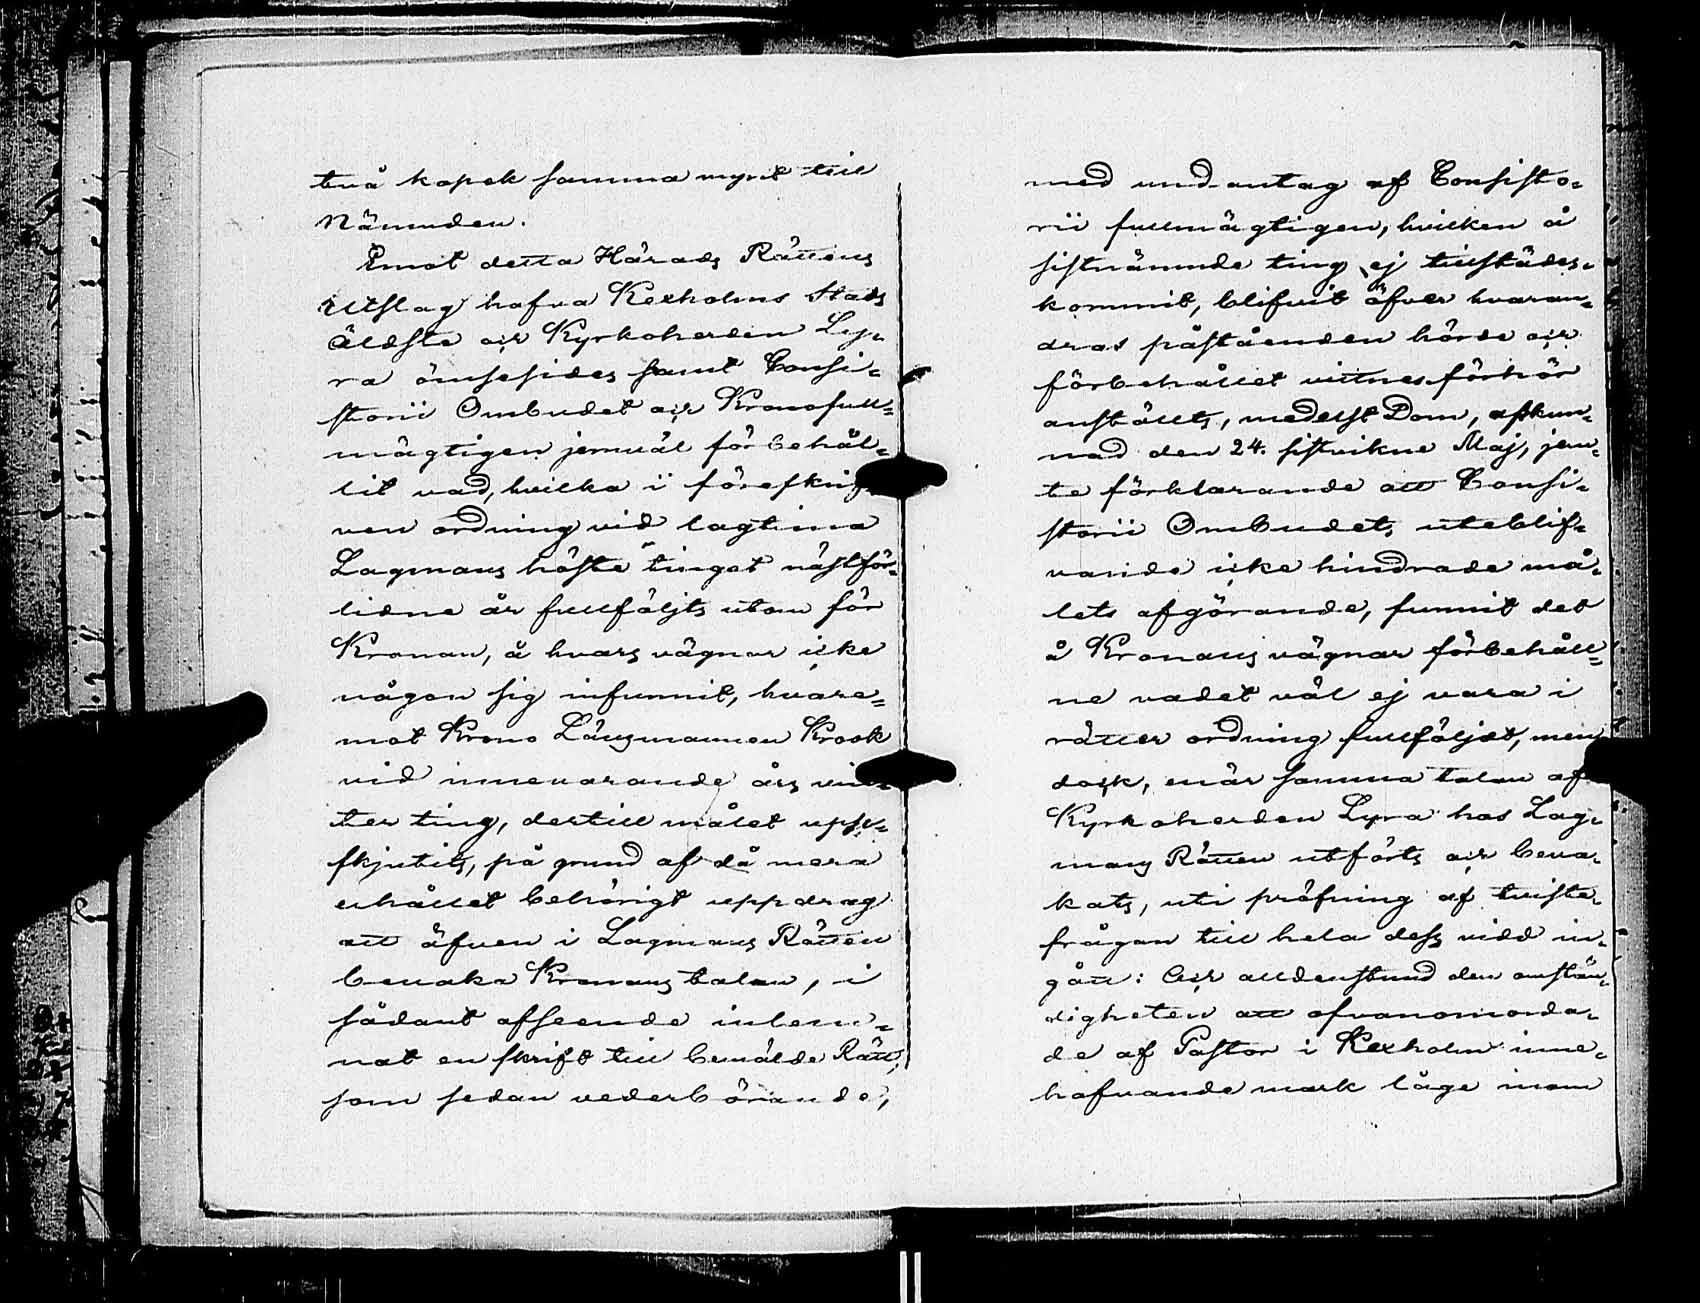 två kopek samma mynt till
Nämnden.
Emot detta Härads Rättens
Utslag hafva Kexholms Stads
Äldste och Kyrkoherden Ly-
ra ömsesides samt Consi-
storii Ombudet och Kronofull-
mägtigen jemväl förbehål-
lit vad, hvilka i föreskrif-
ven ordning vid lagtima
Lagmans höste tinget nästför-
lidne år fullföljts utom för
Kronan, å hvars vägnar icke
någon sig infunnit, hvare-
mot Krono Länsmannen Krook
vid innevarande års vin-
ter ting, dertill målet upp-
skjutits, på grund af då mera
erhållet behörigt uppdrag
att äfven i Lagmans Rätten
bevaka Kronans talan, i
sådant afseende inlem-
nat en skrift till bemälde Rätt,
som sedan vederbörande,
med undantag af Consisto-
rii fullmägtigen, hvilken å
sistnämnde ting ej tillstädes-
kommit, blifvit öfver hvaran-
dras påståenden hörde och
förbehållet vittnesförhör
anställts, medelst Dom, afkun-
nad den 24. sistvikne Maj, jem-
te förklarande att Consi-
storii Ombudets uteblif-
vande icke hindrade må-
lets afgörande, funnit det
å Kronans vägnar förbehåll-
ne vadet väl ej vara i
rätter ordning fullföljdt, men
dock, enär samma talan af
Kyrkoherden Lyra hos Lag-
mans Rätten utförts och beva-
kats, uti pröfning af tviste-
frågan till hela dess vidd in-
gått: Och alldenstund den omstän-
digheten att ofvanomorda-
de af Pastor i Kexholm inne-
hafvande mark låge inom